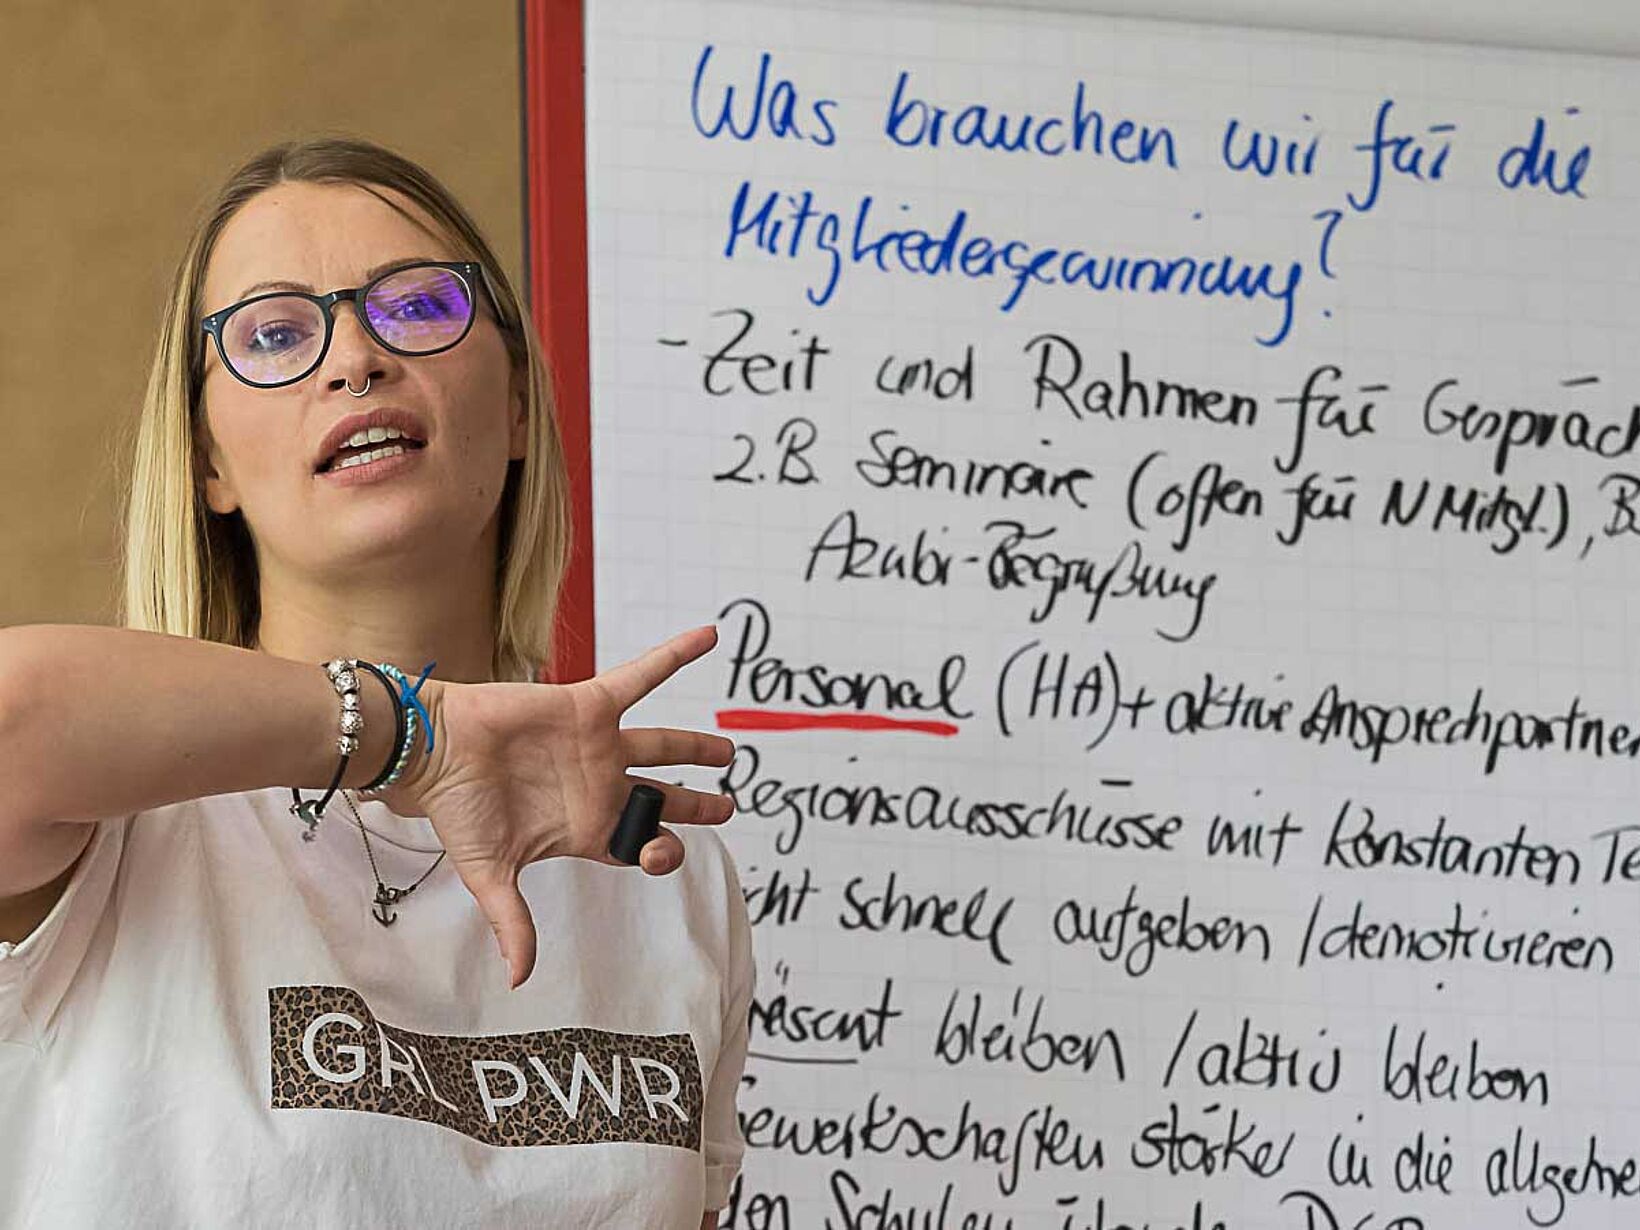 Was brauchen wir für die
Mitgliedergewinnung?
- Zeit und Rahmen für Gespräch
z.B. Seminare (offen für N Mitgl.), B
Azubi-Begrüßung
Personal (HA)+ aktive Ansprechpartner
- Regionsausschüsse mit konstanten Te
cht schnell aufgeben /demotivieren
räsent bleiben / aktiv bleiben
ewerkschaften stärker in die allgeme
den Schulen
GRL PWR